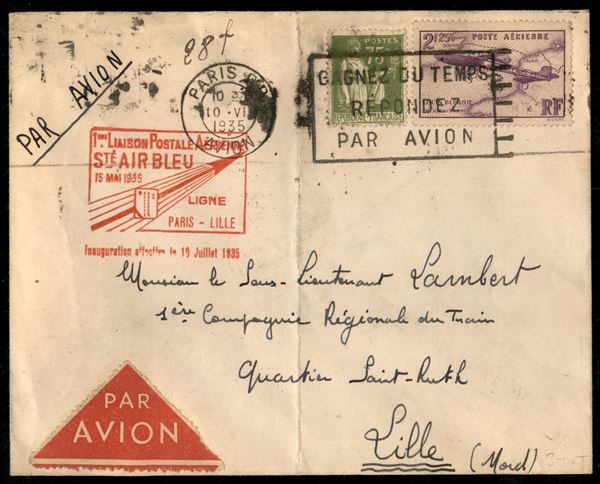 PAR AVION
28 f
PARIS
10
10 - VI
1935
AVION
POSTES
75c
RÉPUBLIQUE FRANÇAISE
2f25c POSTE AÉRIENNE
BLÉRIOT
RF
GAGNEZ DU TEMPS
REPONDEZ
PAR AVION
1ères LIAISON POSTALE AÉRIENNE
STÉ AIR BLEU
15 MAI 1935
LIGNE
PARIS - LILLE
Inauguration effective le 10 Juillet 1935
Monsieur le Sous-Lieutenant Lambert
1ère Compagnie Régionale du Train
Quartier Saint-Ruth
Lille
(Nord)
PAR
AVION